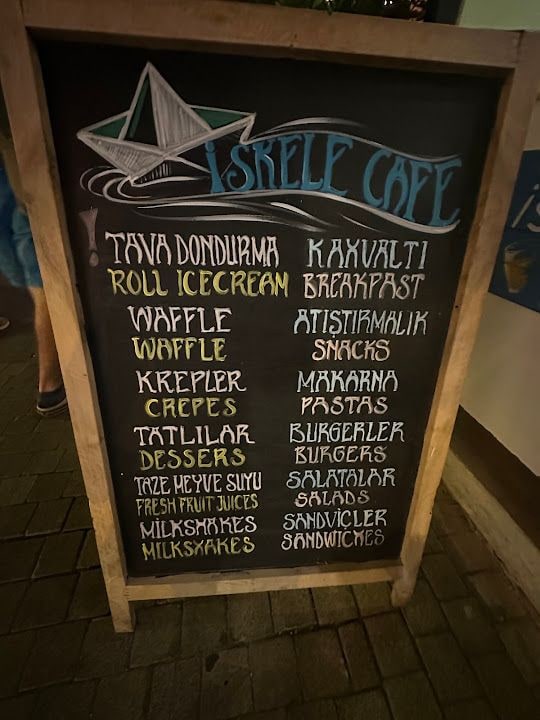 İSKELE CAFE
! TAVA DONDURMA
ROLL ICECREAM
WAFFLE
WAFFLE
KREPLER
CREPES
TATLILAR
DESSERS
TAZE MEYVE SUYU
FRESH FRUIT JUICES
MİLKSHAKES
MILKSHAKES
KAHVALTI
BREAKFAST
ATIŞTIRMALIK
SNACKS
MAKARNA
PASTAS
BURGERLER
BURGERS
SALATALAR
SALADS
SANDVİÇLER
SANDWICHES